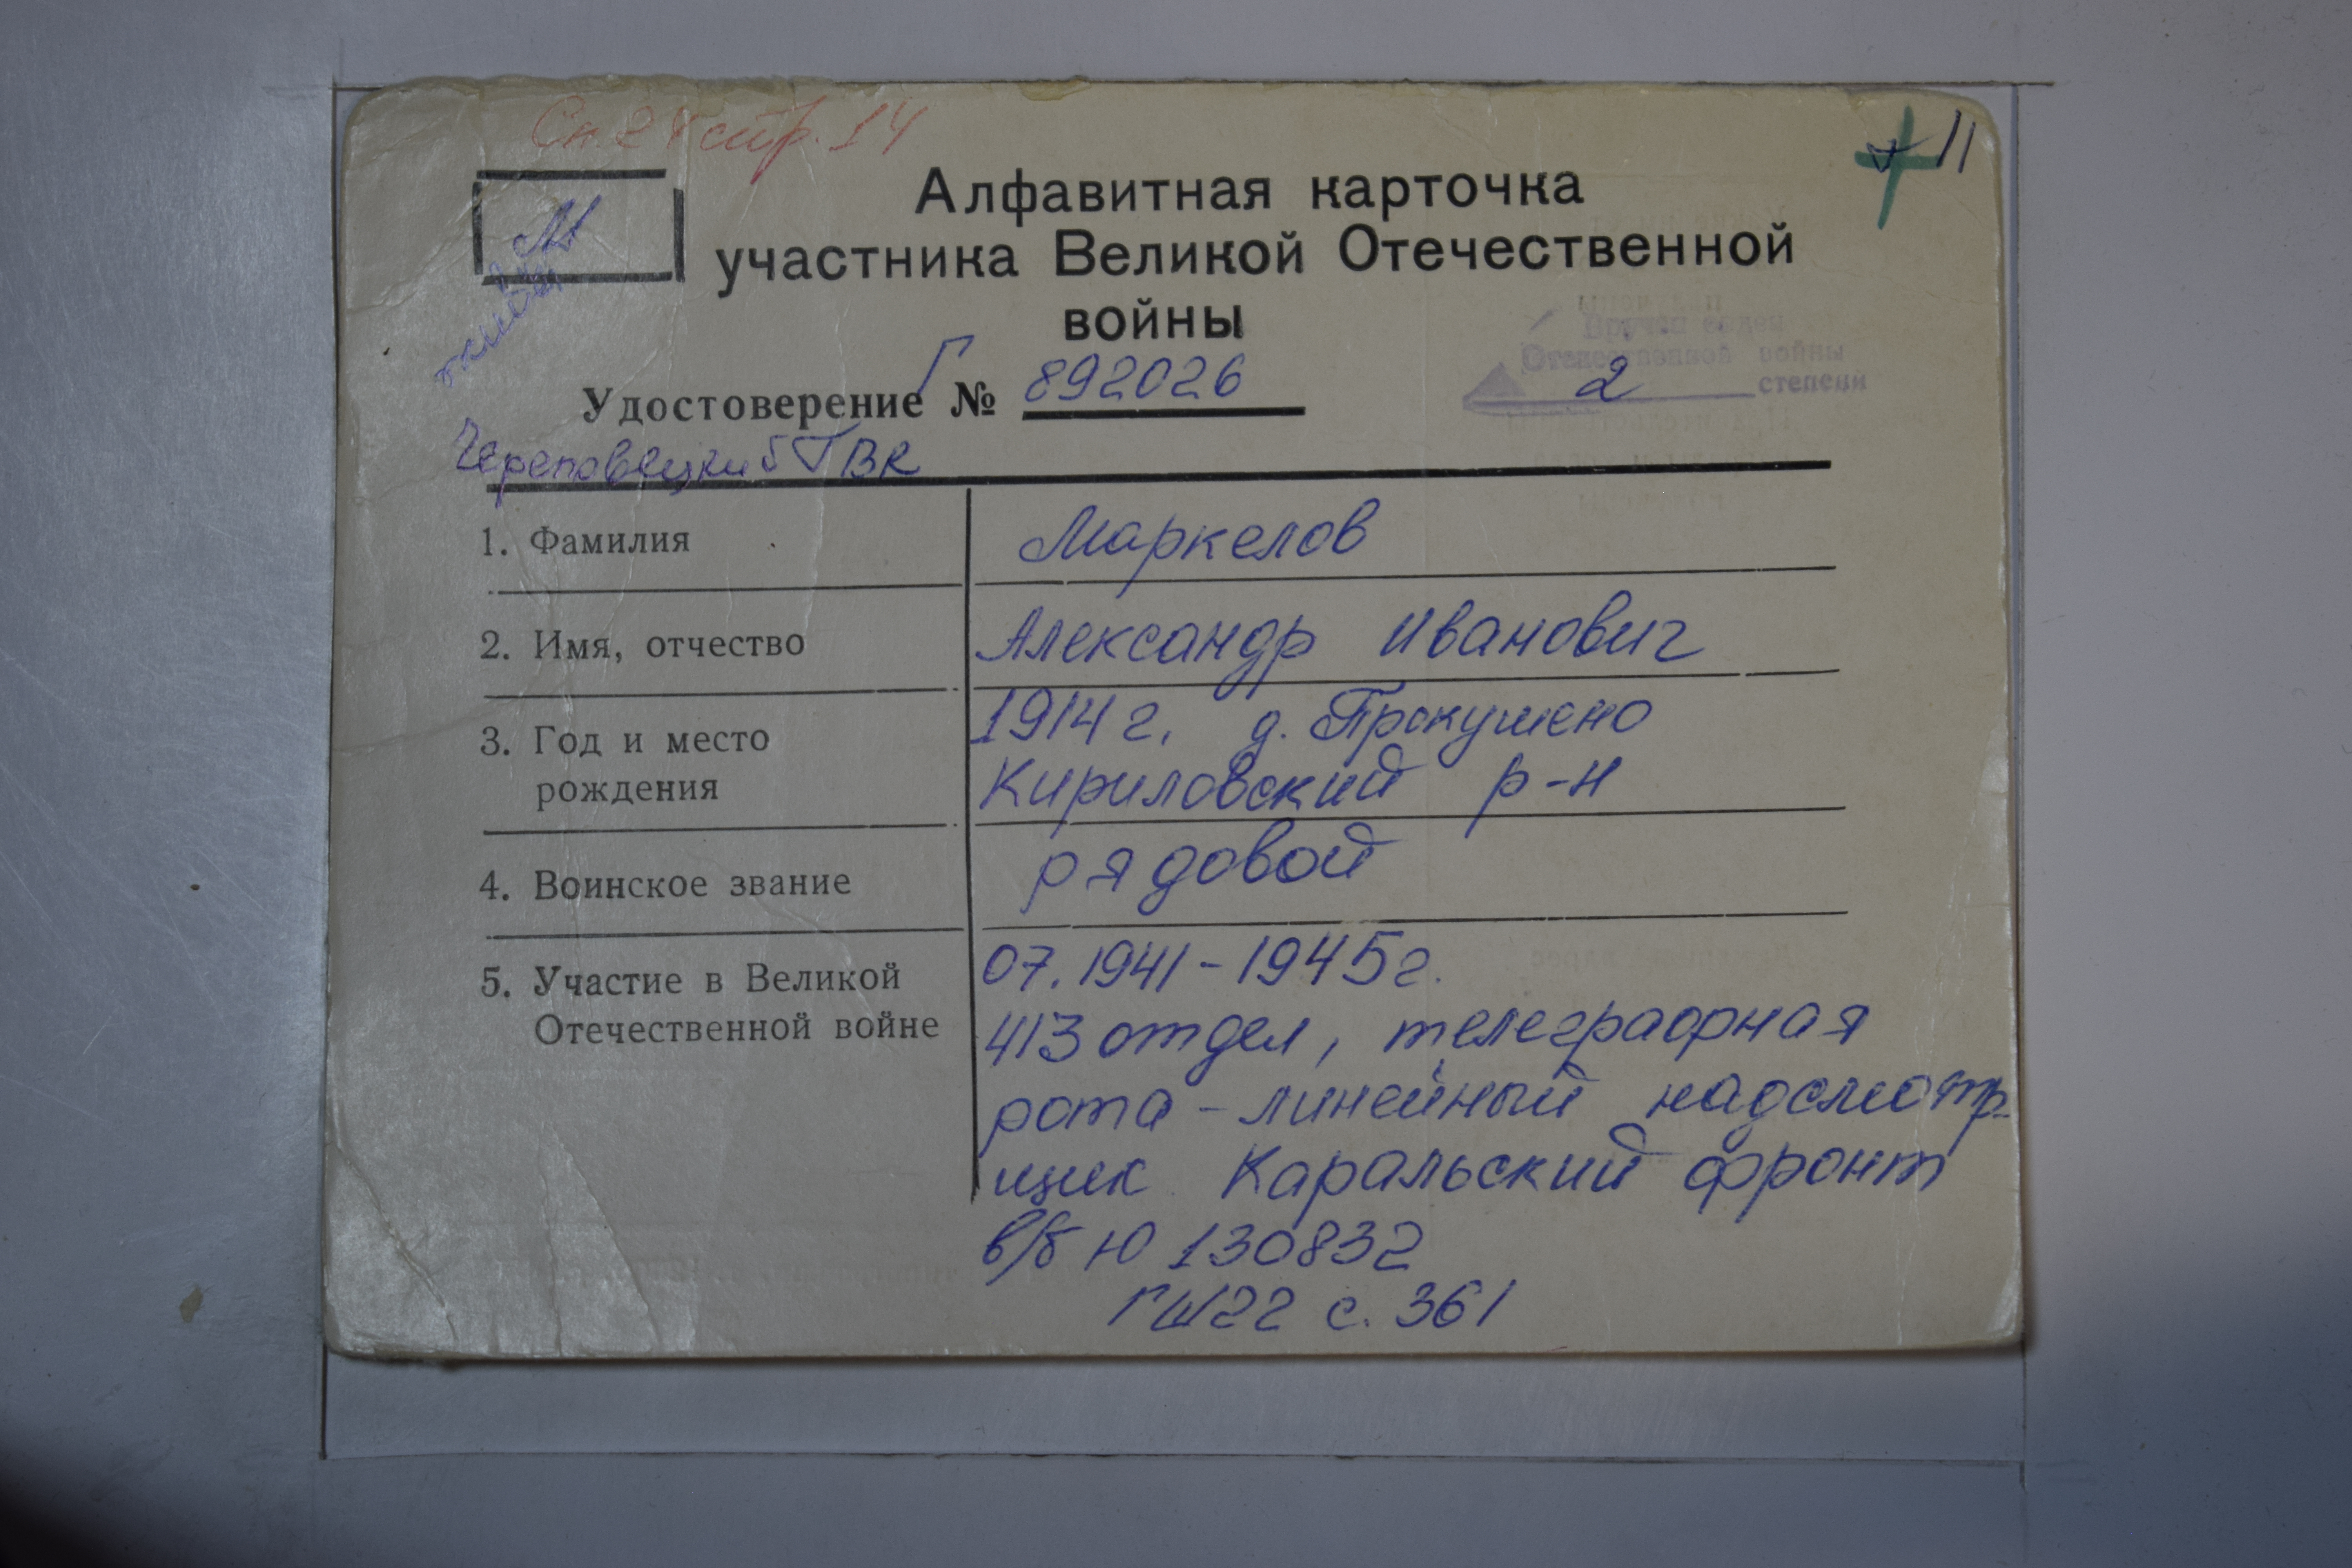 Сп. 24 стр. 14
11
М
Алфавитная карточка
участника Великой Отечественной
войны
Вручен орден
Отечественной войны
2 степени
Удостоверение Г № 892026
Череповецкий ГВК
1. Фамилия Маркелов
2. Имя, отчество Александр Иванович
3. Год и место 1914 г. д. Прокушено
рождения Кириловский р-н
4. Воинское звание рядовой
5. Участие в Великой 07.1941-1945г.
Отечественной войне 413 отдел, телеграфная
рота - линейный надсмотр-
щик Каральский фронт
в/б Ю 130832
ГШ22 с. 361